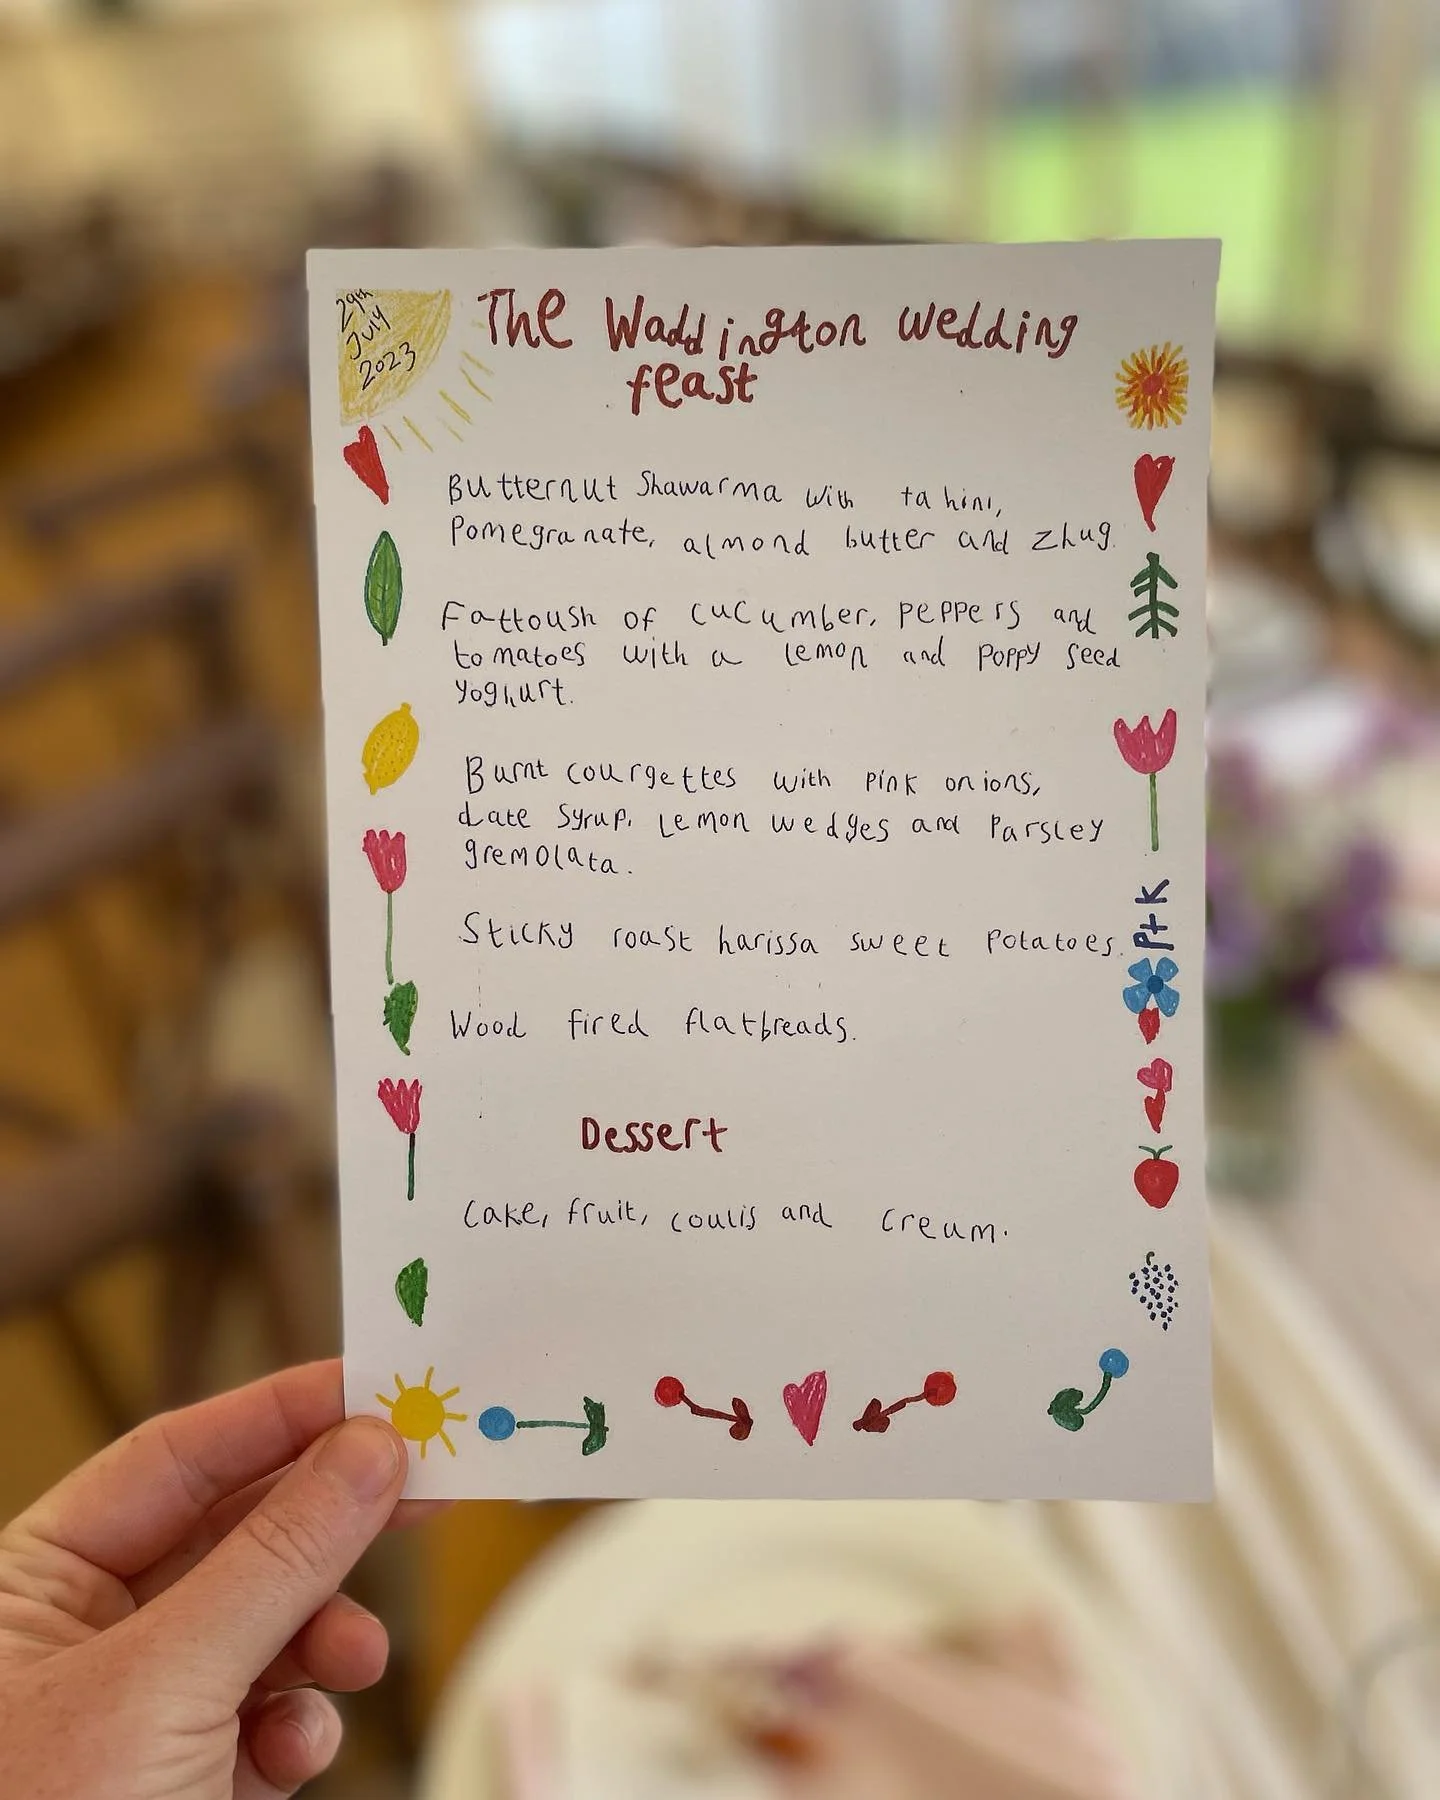 29th
July
2023
The Waddington wedding
feast
Butternut Shawarma with tahini,
Pomegranate, almond butter and zhug.
Fattoush of cucumber, peppers and
tomatoes with a lemon and poppy seed
yoghurt.
Burnt courgettes with pink onions,
date syrup, lemon wedges and parsley
gremolata.
Sticky roast harissa sweet potatoes.
P+K
Wood fired flatbreads.
Dessert
Cake, fruit, coulis and cream.